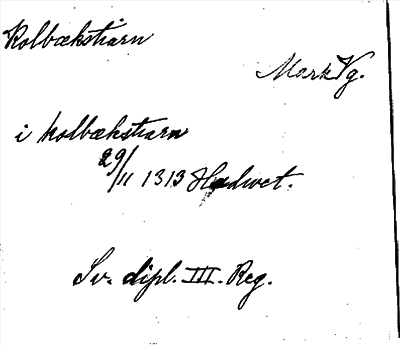 Kolbækstiarn
Mark Vg.
i kolbækstiarn
29/11 1313 Hædwet.
Sv. dipl. III. Reg.